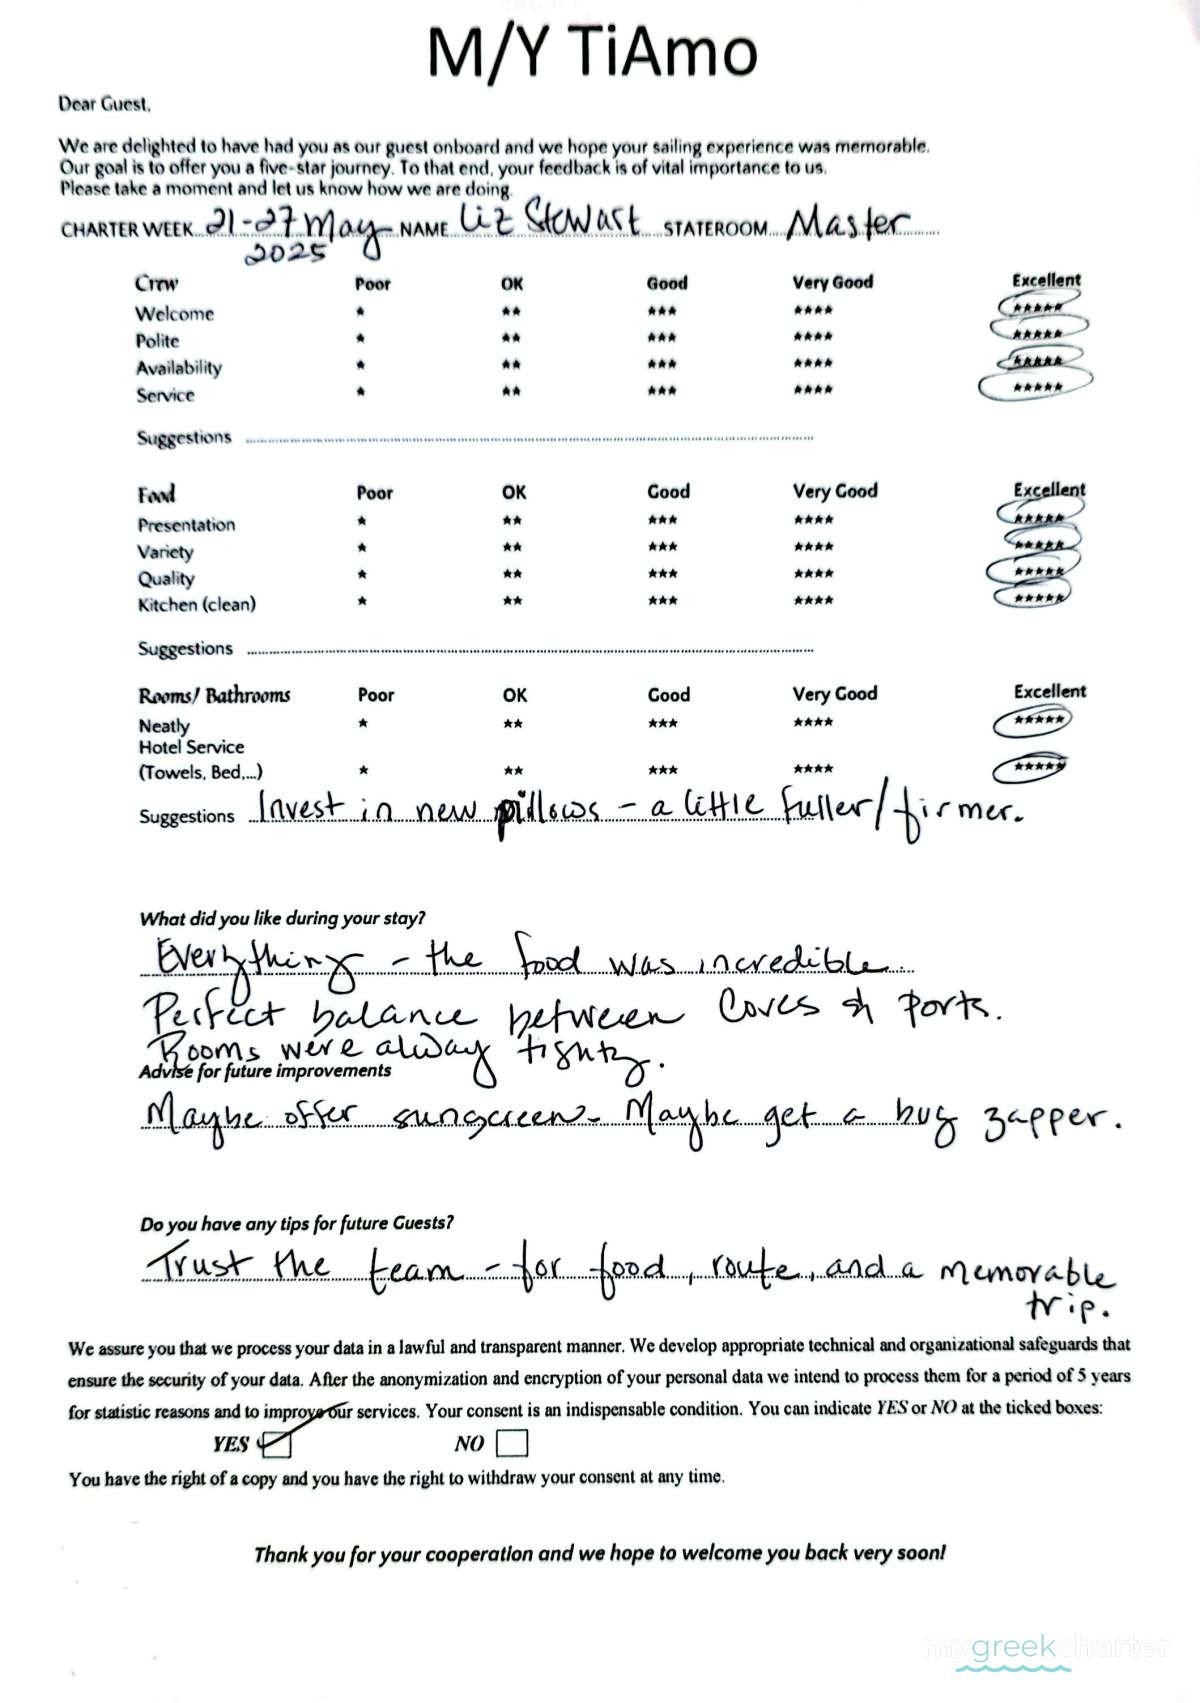 M/Y TiAmo
Dear Guest,
We are delighted to have had you as our guest onboard and we hope your sailing experience was memorable.
Our goal is to offer you a five-star journey. To that end, your feedback is of vital importance to us.
Please take a moment and let us know how we are doing.
CHARTER WEEK 21-27 May NAME Liz Stewart STATEROOM Master
2025
Crew Poor OK Good Very Good Excellent
Welcome * ** *** **** *****
Polite * ** *** **** *****
Availability * ** *** **** *****
Service * ** *** **** *****
Suggestions
Food Poor OK Good Very Good Excellent
Presentation * ** *** **** *****
Variety * ** *** **** *****
Quality * ** *** **** *****
Kitchen (clean) * ** *** **** *****
Suggestions
Rooms/ Bathrooms Poor OK Good Very Good Excellent
Neatly * ** *** **** *****
Hotel Service
(Towels, Bed,...) * ** *** **** *****
Suggestions Invest in new pillows - a little fuller/firmer.
What did you like during your stay?
Everything - the food was incredible.
Perfect balance between coves & ports.
Rooms were alway tighty.
Advise for future improvements
Maybe offer sunscreen - Maybe get a bug zapper.
Do you have any tips for future Guests?
Trust the team - for food, route, and a memorable
trip.
We assure you that we process your data in a lawful and transparent manner. We develop appropriate technical and organizational safeguards that
ensure the security of your data. After the anonymization and encryption of your personal data we intend to process them for a period of 5 years
for statistic reasons and to improve our services. Your consent is an indispensable condition. You can indicate YES or NO at the ticked boxes:
YES NO
You have the right of a copy and you have the right to withdraw your consent at any time.
Thank you for your cooperation and we hope to welcome you back very soon!
mygreekcharter